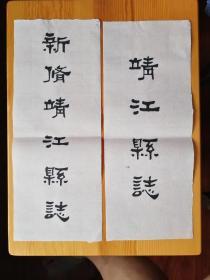 新脩靖江縣誌
靖江縣誌